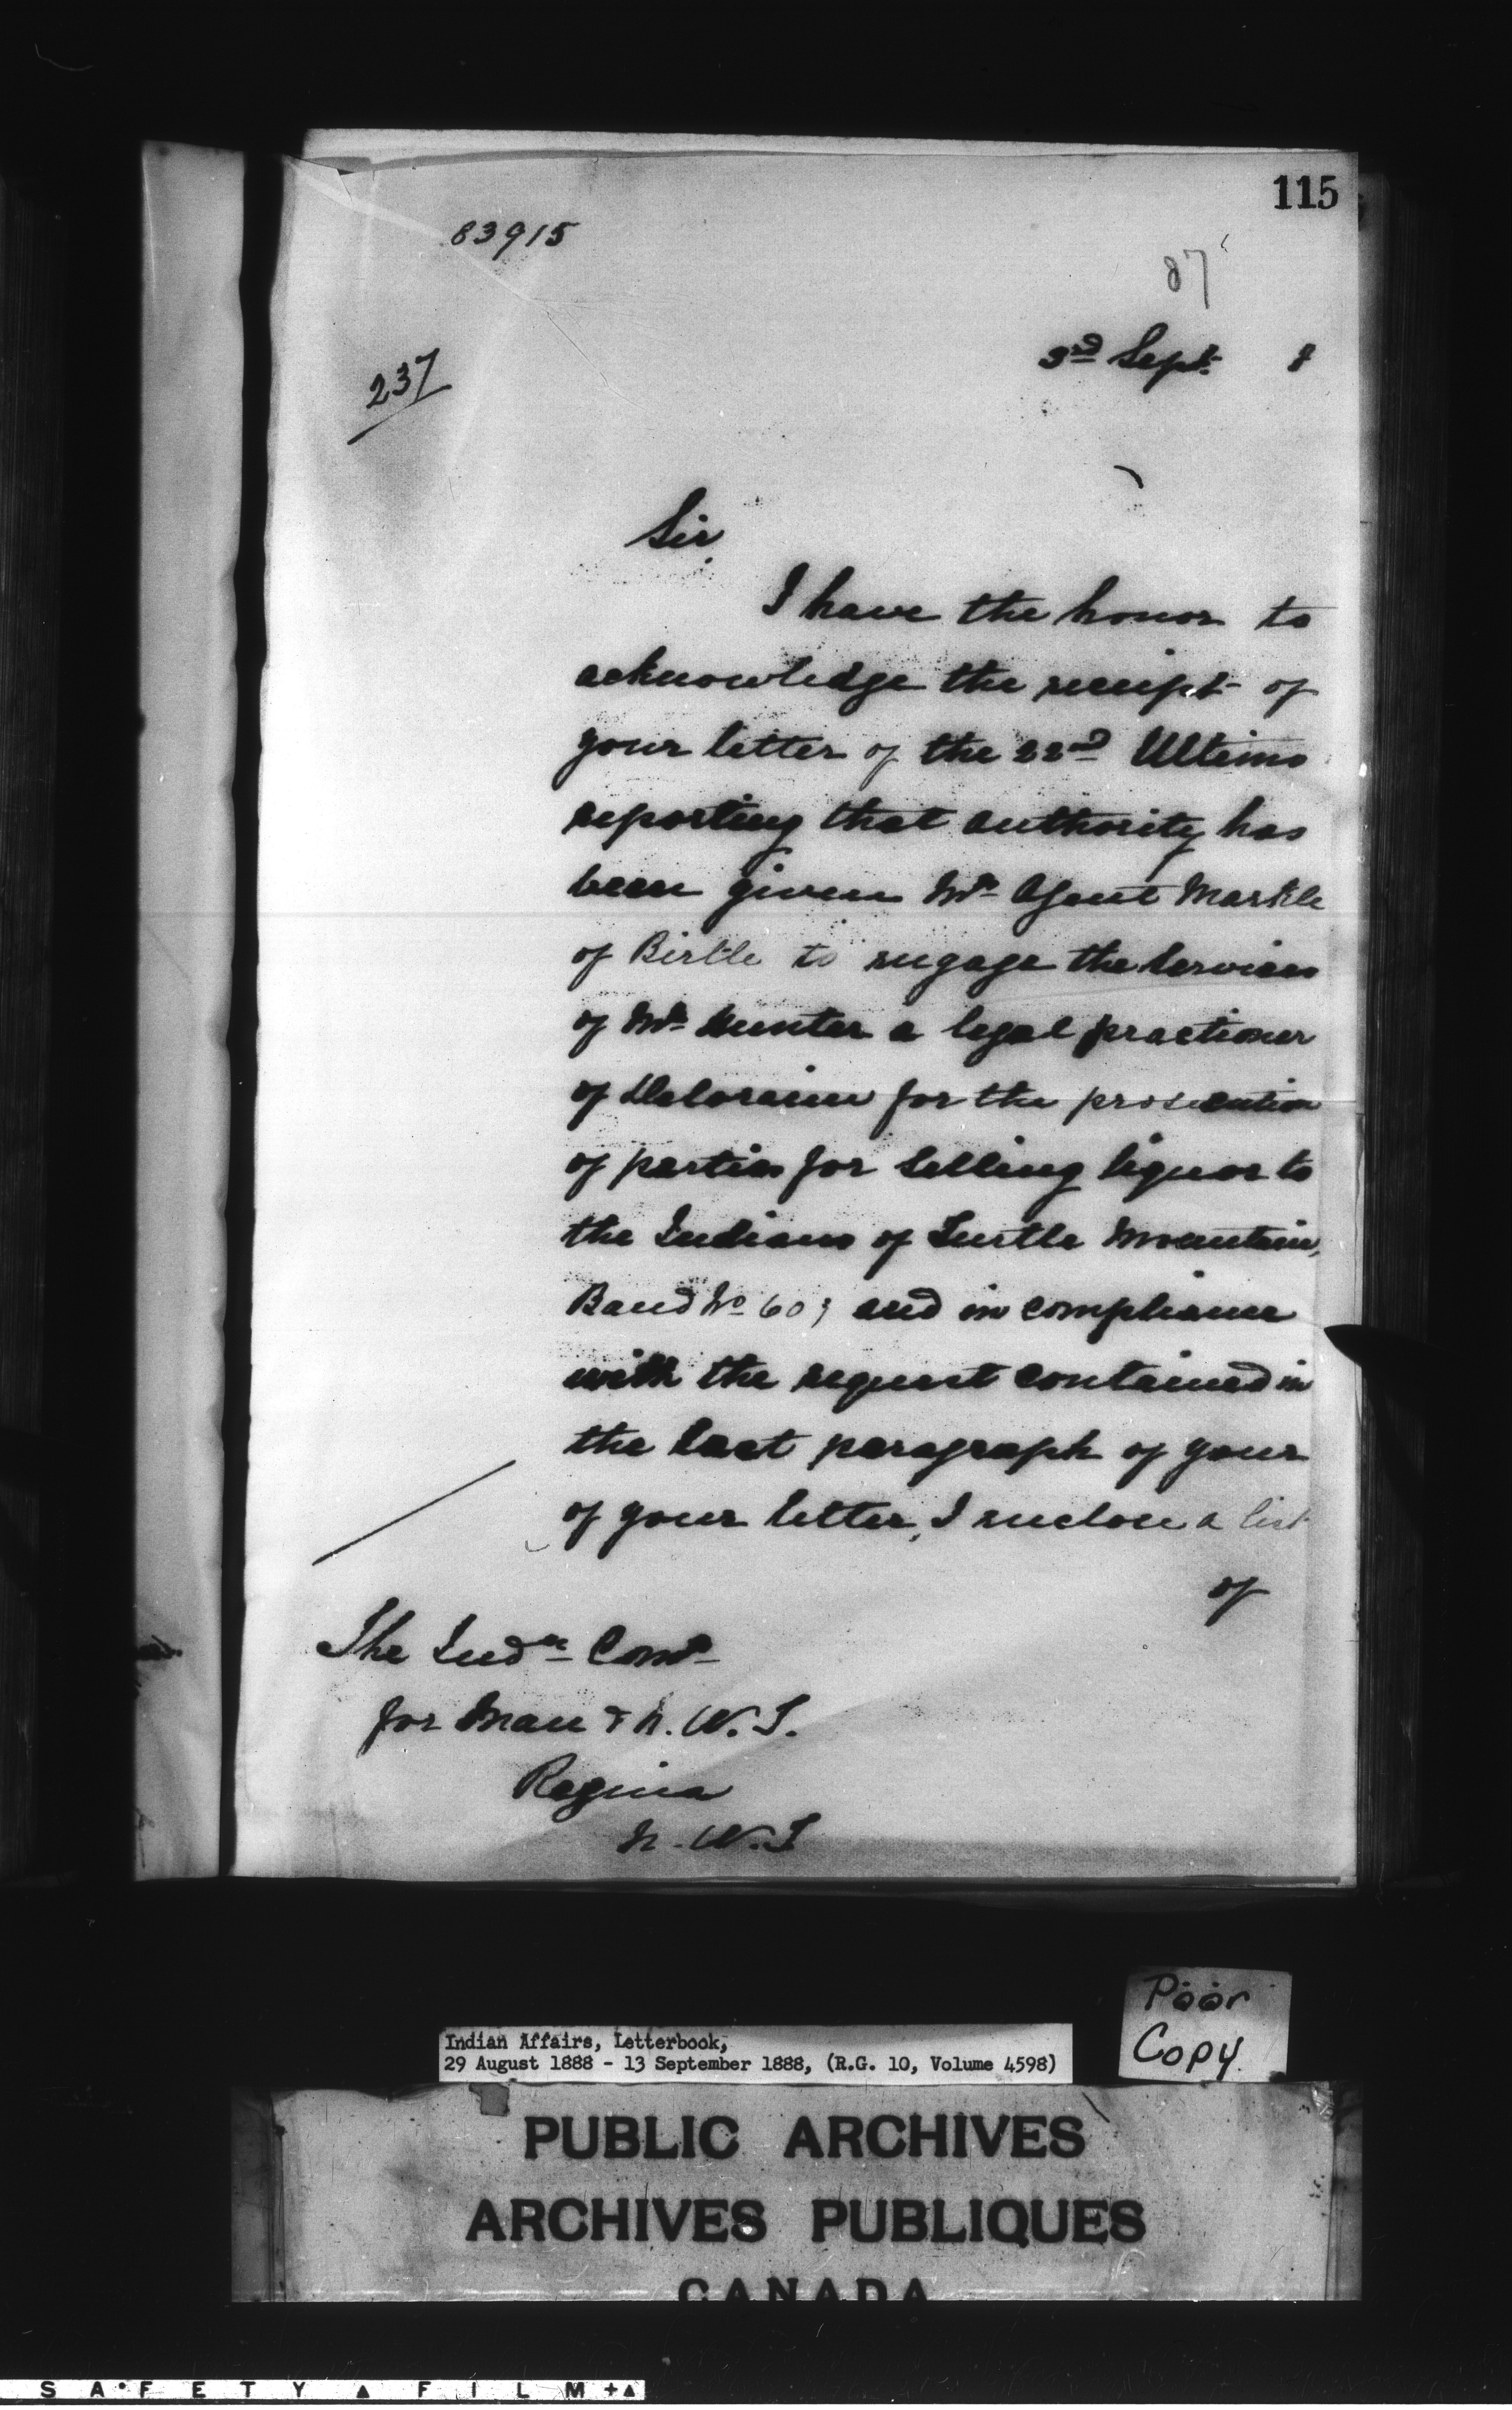 115
83915
87
3rd Sept. 8
237
Sir,
I have the honor to
acknowledge the receipt of
your letter of the 22nd Ultimo
reporting that authority has
been given Mr Agent Markle
of Birtle to engage the services
of Mr Hunter a legal practioner
of Deloraine for the prosecution
of parties for selling liquor to
the Indians of Turtle Mountain,
Band No 60; and in compliance
with the request contained in
the last paragraph of your
of your letter, I enclose a list
of
The Indn Comr
for Man & N.W.T.
Regina
N.W.T
Poor
Copy.
Indian Affairs, Letterbook,
29 August 1888 - 13 September 1888, (R.G. 10, Volume 4598)
PUBLIC ARCHIVES
ARCHIVES PUBLIQUES
CANADA
SAFETY FILM